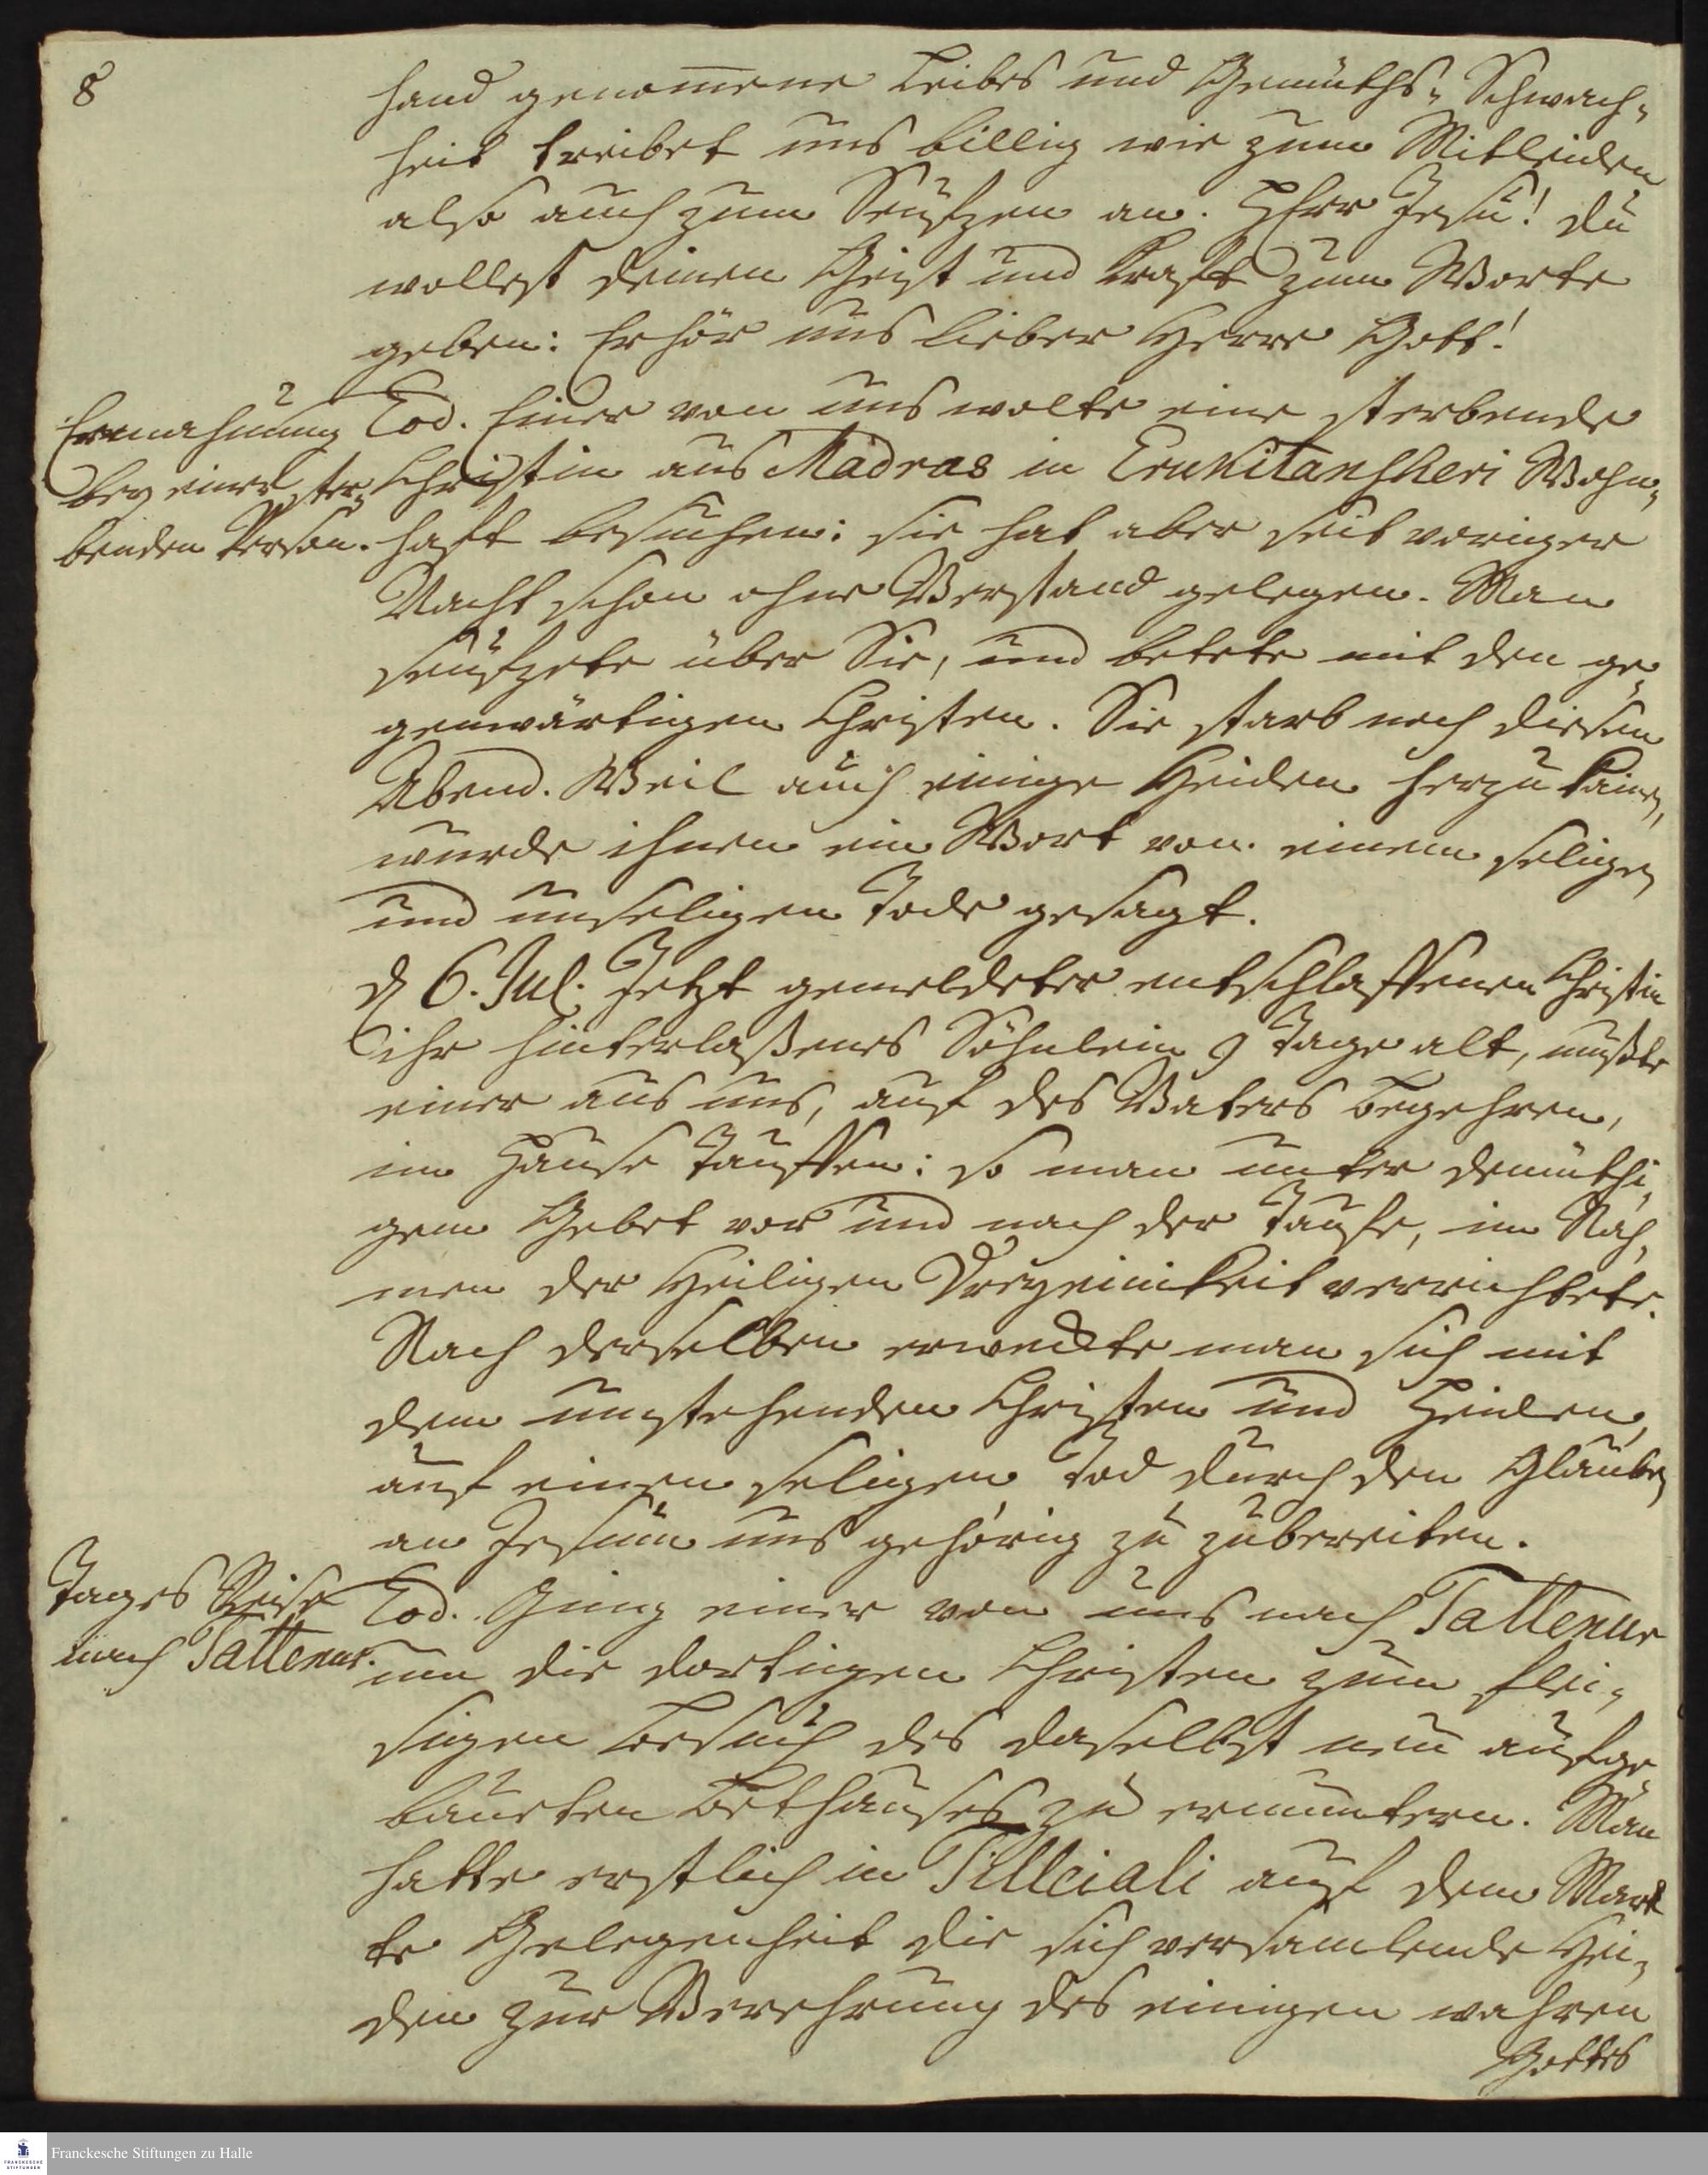 8
hand genommene Leibes und Gemüths-Schwach-
heit treibet uns billig wie zum Mitleiden
also auch zum Seufzen an. HErr Jesu! du
wollest deinen Geist und Kraft zum Worte
geben: Erhör uns lieber Herre Gott!
Ermahnung
bey einer ster-
benden Person.
Eod. Einer von uns wolte eine sterbende
Christin aus Madras in Erukitansheri Wohn-
haft besuchen: sie hat aber seit voriger
Nacht schon ohne Verstand gelegen. Man
seufzete über Sie, und betete mit den ge-
genwärtigen Christen. Sie starb noch diesen
Abend. Weil auch einige Heiden herzu kamen,
wurde ihnen ein Wort von einem seligen
und unseligen Tode gesagt.
d 6. Jul. Jetzt gemeldeter entschlaffenen Christin
ihr hinterlaßenes Söhnlein 9 Tage alt, mußte
einer aus uns, auf des Vaters Begehren,
im Hause Tauffen: so man unter demüthi-
gem Gebet vor und nach der Taufe, im Nah-
men der Heiligen Dreyeinikeit verrichtete.
Nach derselben erweckte man sich mit
denn umstehenden Christen und Heiden,
auf einen seligen Tod durch den Glauben
an Jesum uns gehörig zu zubereiten.
Tages Reise
nach Tattenur.
Eod. Ging einer von uns nach Tattenur
um die dortigen Christen zum flei-
sigen Besuch des daselbst neu aufge
bauten Bethauses zu ermuntern. Man
hatte erstlich in Tilleiali auf dem Mark
te Gelegenheit die sich versamlende Hei-
den zur Verehrung des einigen wahren
Gottes
Franckesche Stiftungen zu Halle